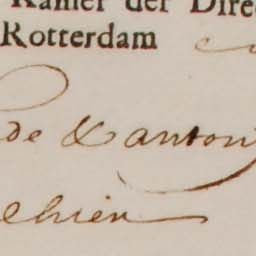 Kamer der Dire
Rotterdam
de Xanton
Chien